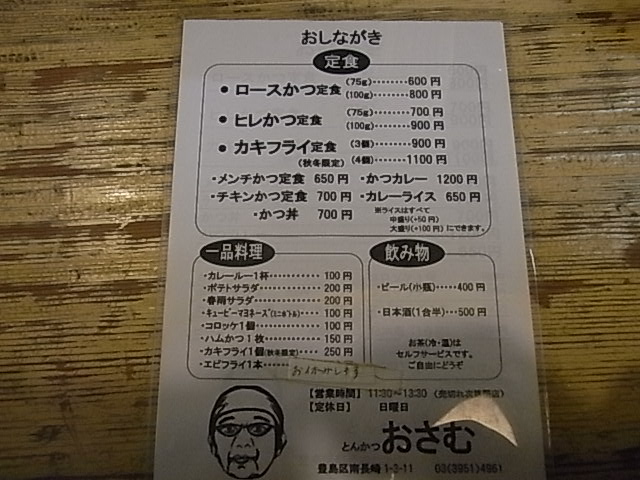 おしながき
定食
● ロースかつ定食 (75g)………600円
(100g)………800円
● ヒレかつ定食 (75g)………700円
(100g)………900円
● カキフライ定食 (3個)………900円
(秋冬限定) (4個)………1100円
・メンチかつ定食 650円 ・かつカレー 1200円
・チキンかつ定食 700円 ・カレーライス 650円
・かつ丼 700円
※ライスはすべて
中盛り(+50円)
大盛り(+100円)にできます。
一品料理
・カレールー1杯…………100円
・ポテトサラダ…………200円
・春雨サラダ…………200円
・キューピーマヨネーズ(ミニボトル)……100円
・コロッケ1個…………100円
・ハムかつ1枚…………150円
・カキフライ1個(秋冬限定)……250円
・エビフライ1本……
飲み物
・ビール(小瓶)……400円
・日本酒(1合半)…500円
お茶(冷・温)は
セルフサービスです。
ご自由にどうぞ
【営業時間】 11:30~13:30
【定休日】 日曜日
とんかつ おさむ
豊島区南長崎 1-3-11 03(3951)4961